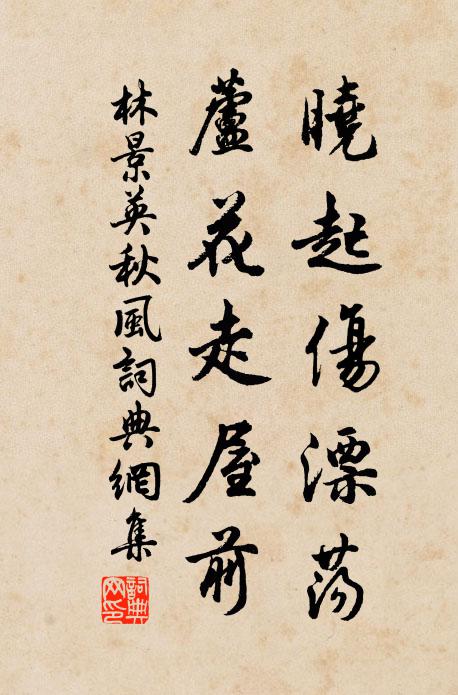 曉起傷漂蕩
蘆花走屋前
林景英秋風詞典網集
詞典网印